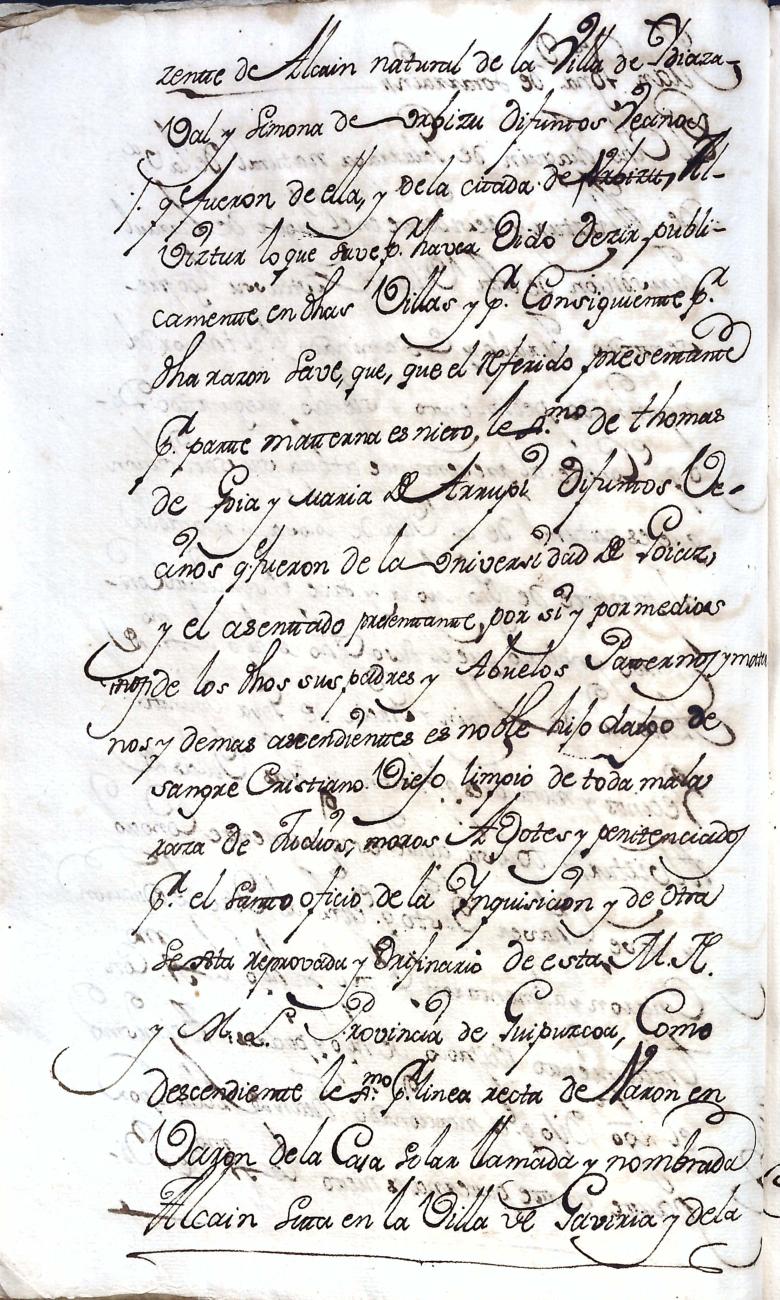 zente de Alcain natural de la Villa de Ydiaza-
val, y Simona de Urbizu difuntos Vecinos
q.e fueron de ella, y de la citada de Al-
viztur lo que save p.r haver oido dezir publi-
camente en dhas Villas y p.r Consiguiente p.r
dha razon save, que, que el referido presentante
p.r parte matterna es nieto, le.mo de thomas
de Goia y Maria de Arrupi difuntos Ve-
cinos q.e fueron de la Universidad de Goiaz,
y el asenttado presentante, por si y por medios
de los dhos sus padres y Abuelos Paternos y mater
nos y demas ascendientes es noble hijo dalgo de
sangre Cristiano Viejo limpio de toda mala
raza de Judios, moros Agotes y penitenciados
p.r el Santo oficio de la Ynquisicion y de otra
Secta reprovada y Orijinario de esta M. N.
y M. L. Provincia de Guipuzcoa, Como
descendiente le.mo p.r linea recta de Varon en
Varon de la Casa Solar llamada y nombrada
Alcain sita en la Villa de Gaviria y de la